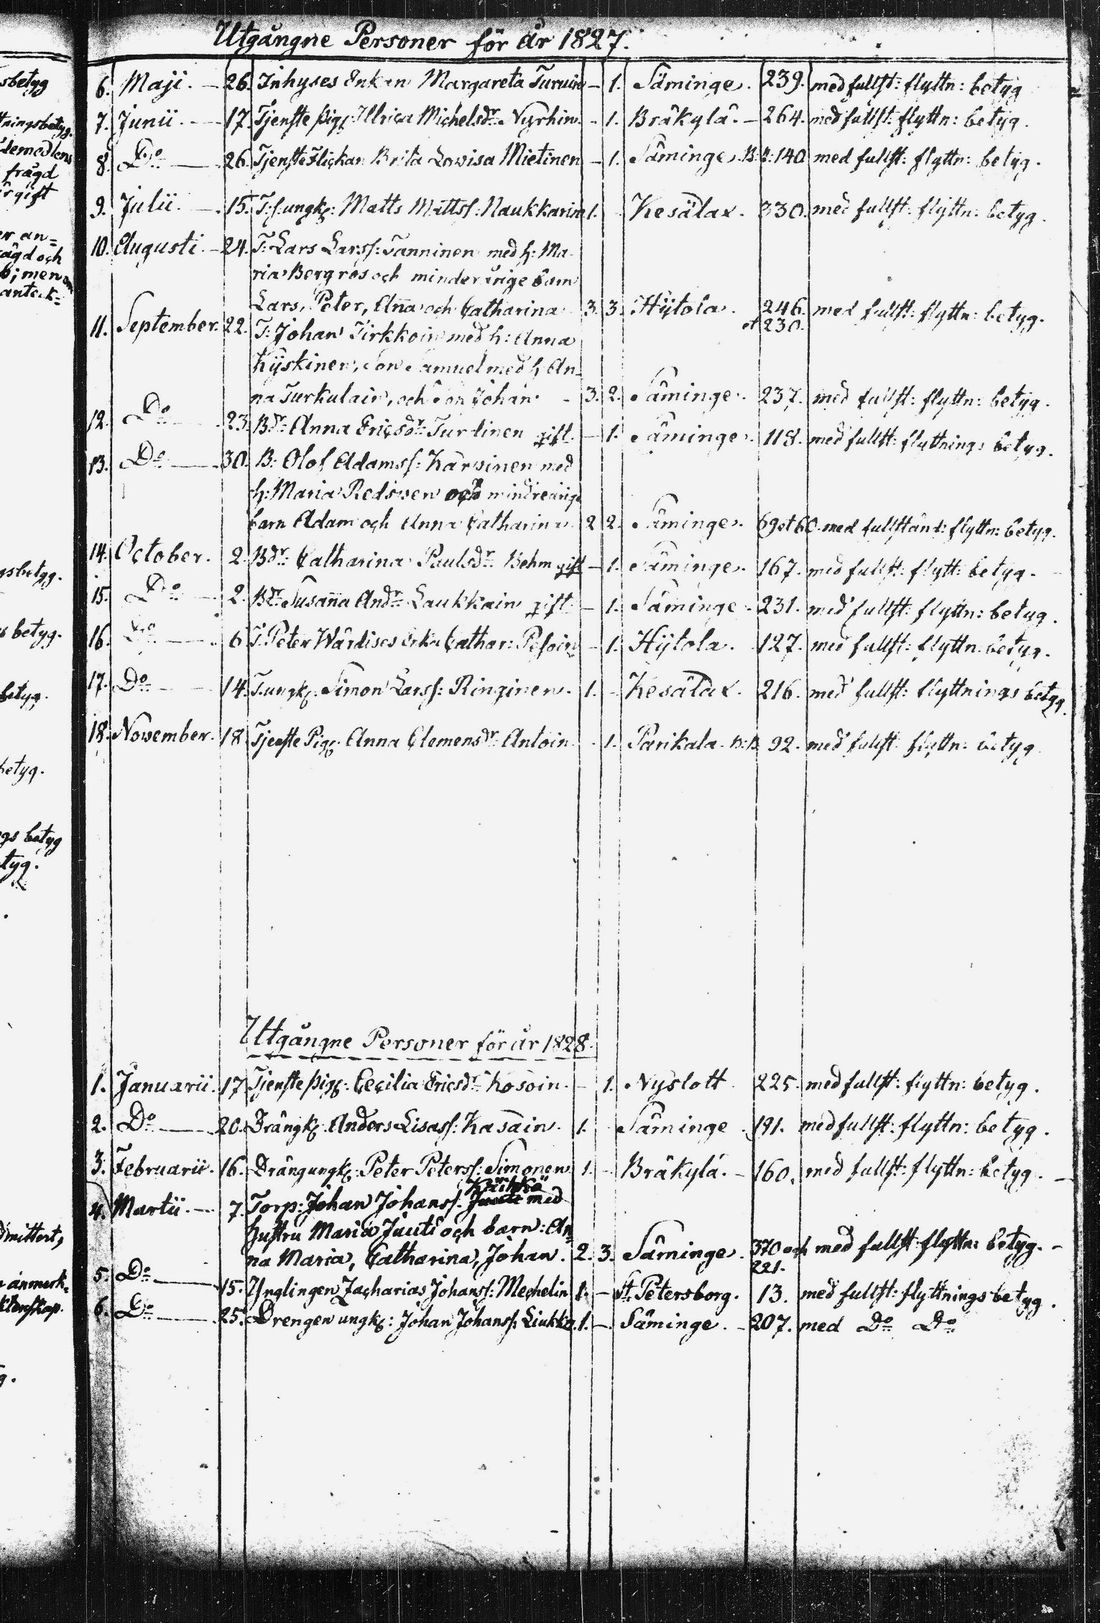 Utgångne Personer för år 1827.
6. Maji. 26. Inhyses Enkan Margareta Turuin - 1. Säminge. 239. med fullst: flyttn: betyg
7. Junii 17. Tjenste pig: Ulrica Michelsdr. Nyrhin - 1. Bräkylä. 264. med fullst: flyttn: betyg.
8. Do 26. Tjenste Flickan Brita Lovisa Mietinen - 1. Säminge. 140 med fullst: flyttn: betyg.
9. Julii. 15. T:s. ungk: Matts Mattss: Naukkarin 1. Kesälax. 330. med fullst: flyttn: betyg.
10. Augusti 24. T: Lars Larss: Tanninen med h: Ma-
ria Bergros och minderårige barn
Lars, Peter, Anna och Catharina 3. 3. Hytola. 246. med fullst: flyttn: betyg.
et 230.
11. September. 22. T: Johan Tirkkoin med h: Anna
Kyskinen, son Samuel med h. An-
na Turkulain, och son Johan - 3. 2. Säminge. 237. med fullst: flyttn: betyg.
12. Do 23. Bdr. Anna Ericsdr. Turtinen gift - 1. Säminge. 118. med fullst: flyttnings betyg.
13. Do 30. B. Olof Adamss: Karvinen med
h: Maria Redsven och mindreårige
barn Adam och Anna Catharina 2 2. Säminge. 69 et 60. med fullständ: flyttn: betyg.
14. October. 2. Bdr. Catharina Paulsdr. Behm gift - 1. Säminge. 167. med fullst: flytt: betyg.
15. Do 2. Bdr. Susanna Andr. Laukkain gift - 1. Säminge. 231. med fullst: flyttn: betyg.
16. Do 6. T. Peter Wärdises Enka Cathar: Pesoin - 1. Hytola. 127. med fullst: flyttn: betyg.
17. Do 14. T. ungk. Simon Larss: Ringinen. 1. - Kesälax. 216. med fullst: flyttnings betyg.
18. November. 18. Tjenste Pig. Anna Clemensdr. Antoin 1. Parikala. 92. med fullst: flyttn: betyg
Utgångne Personer för år 1828.
1. Januarii. 17. Tjenste pig: Cecilia Ericsdr. Kosoin. - 1. Nyslott 225. med fullst: flyttn: betyg.
2. Do 20. Drängk: Anders Lisass: Kasain. 1. Säminge 191. med fullst: flyttn: betyg.
3. Februarii. 16. Drängungk: Peter Peterss: Simonen 1. - Bräkylä. 160. med fullst: flyttn: betyg.
4. Martii 7. Torp: Johan Johanss. med
hustru Maria Juuti och barn: An
na Maria, Catharina, Johan. 2. 3. Säminge. 370 och med fullst: flyttn: betyg.
221.
5. Do 15. Ynglingen Zacharias Johanss: Mechelin 1. - St. Petersborg. 13. med fullst: flyttnings betyg.
6. Do 25. Drengen ungk: Johan Johanss. Liukko. 1. - Säminge. 207. med Do Do